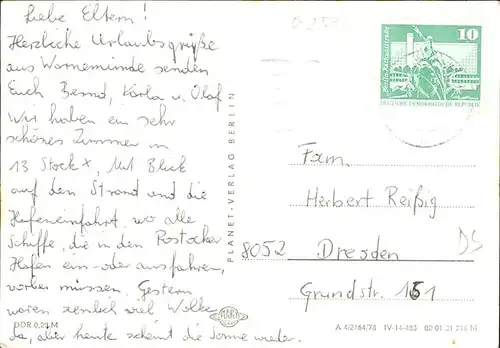 Liebe Eltern!
Herzliche Urlaubsgrüße
aus Warnemünde senden
Euch Bernd, Karla u. Olaf
Wir haben ein sehr
schönes Zimmer im
13 Stock, Mit Blick
auf den Strand und die
Hafeneinfahrt, wo alle
Schiffe, die in den Rostocker
Hafen ein- oder ausfahren,
vorbei müssen. Gestern
waren ziemlich viel Wolken
da, aber heute scheint die Sonne wieder.
DDR 0,20 M
PLANET-VERLAG BERLIN
10
DEUTSCHE DEMOKRATISCHE REPUBLIK
Fam.
Herbert Reißig
8052 Dresden
Grundstr. 161
DS
A 4/2164/78 IV-14-483 02 01 21 216 M